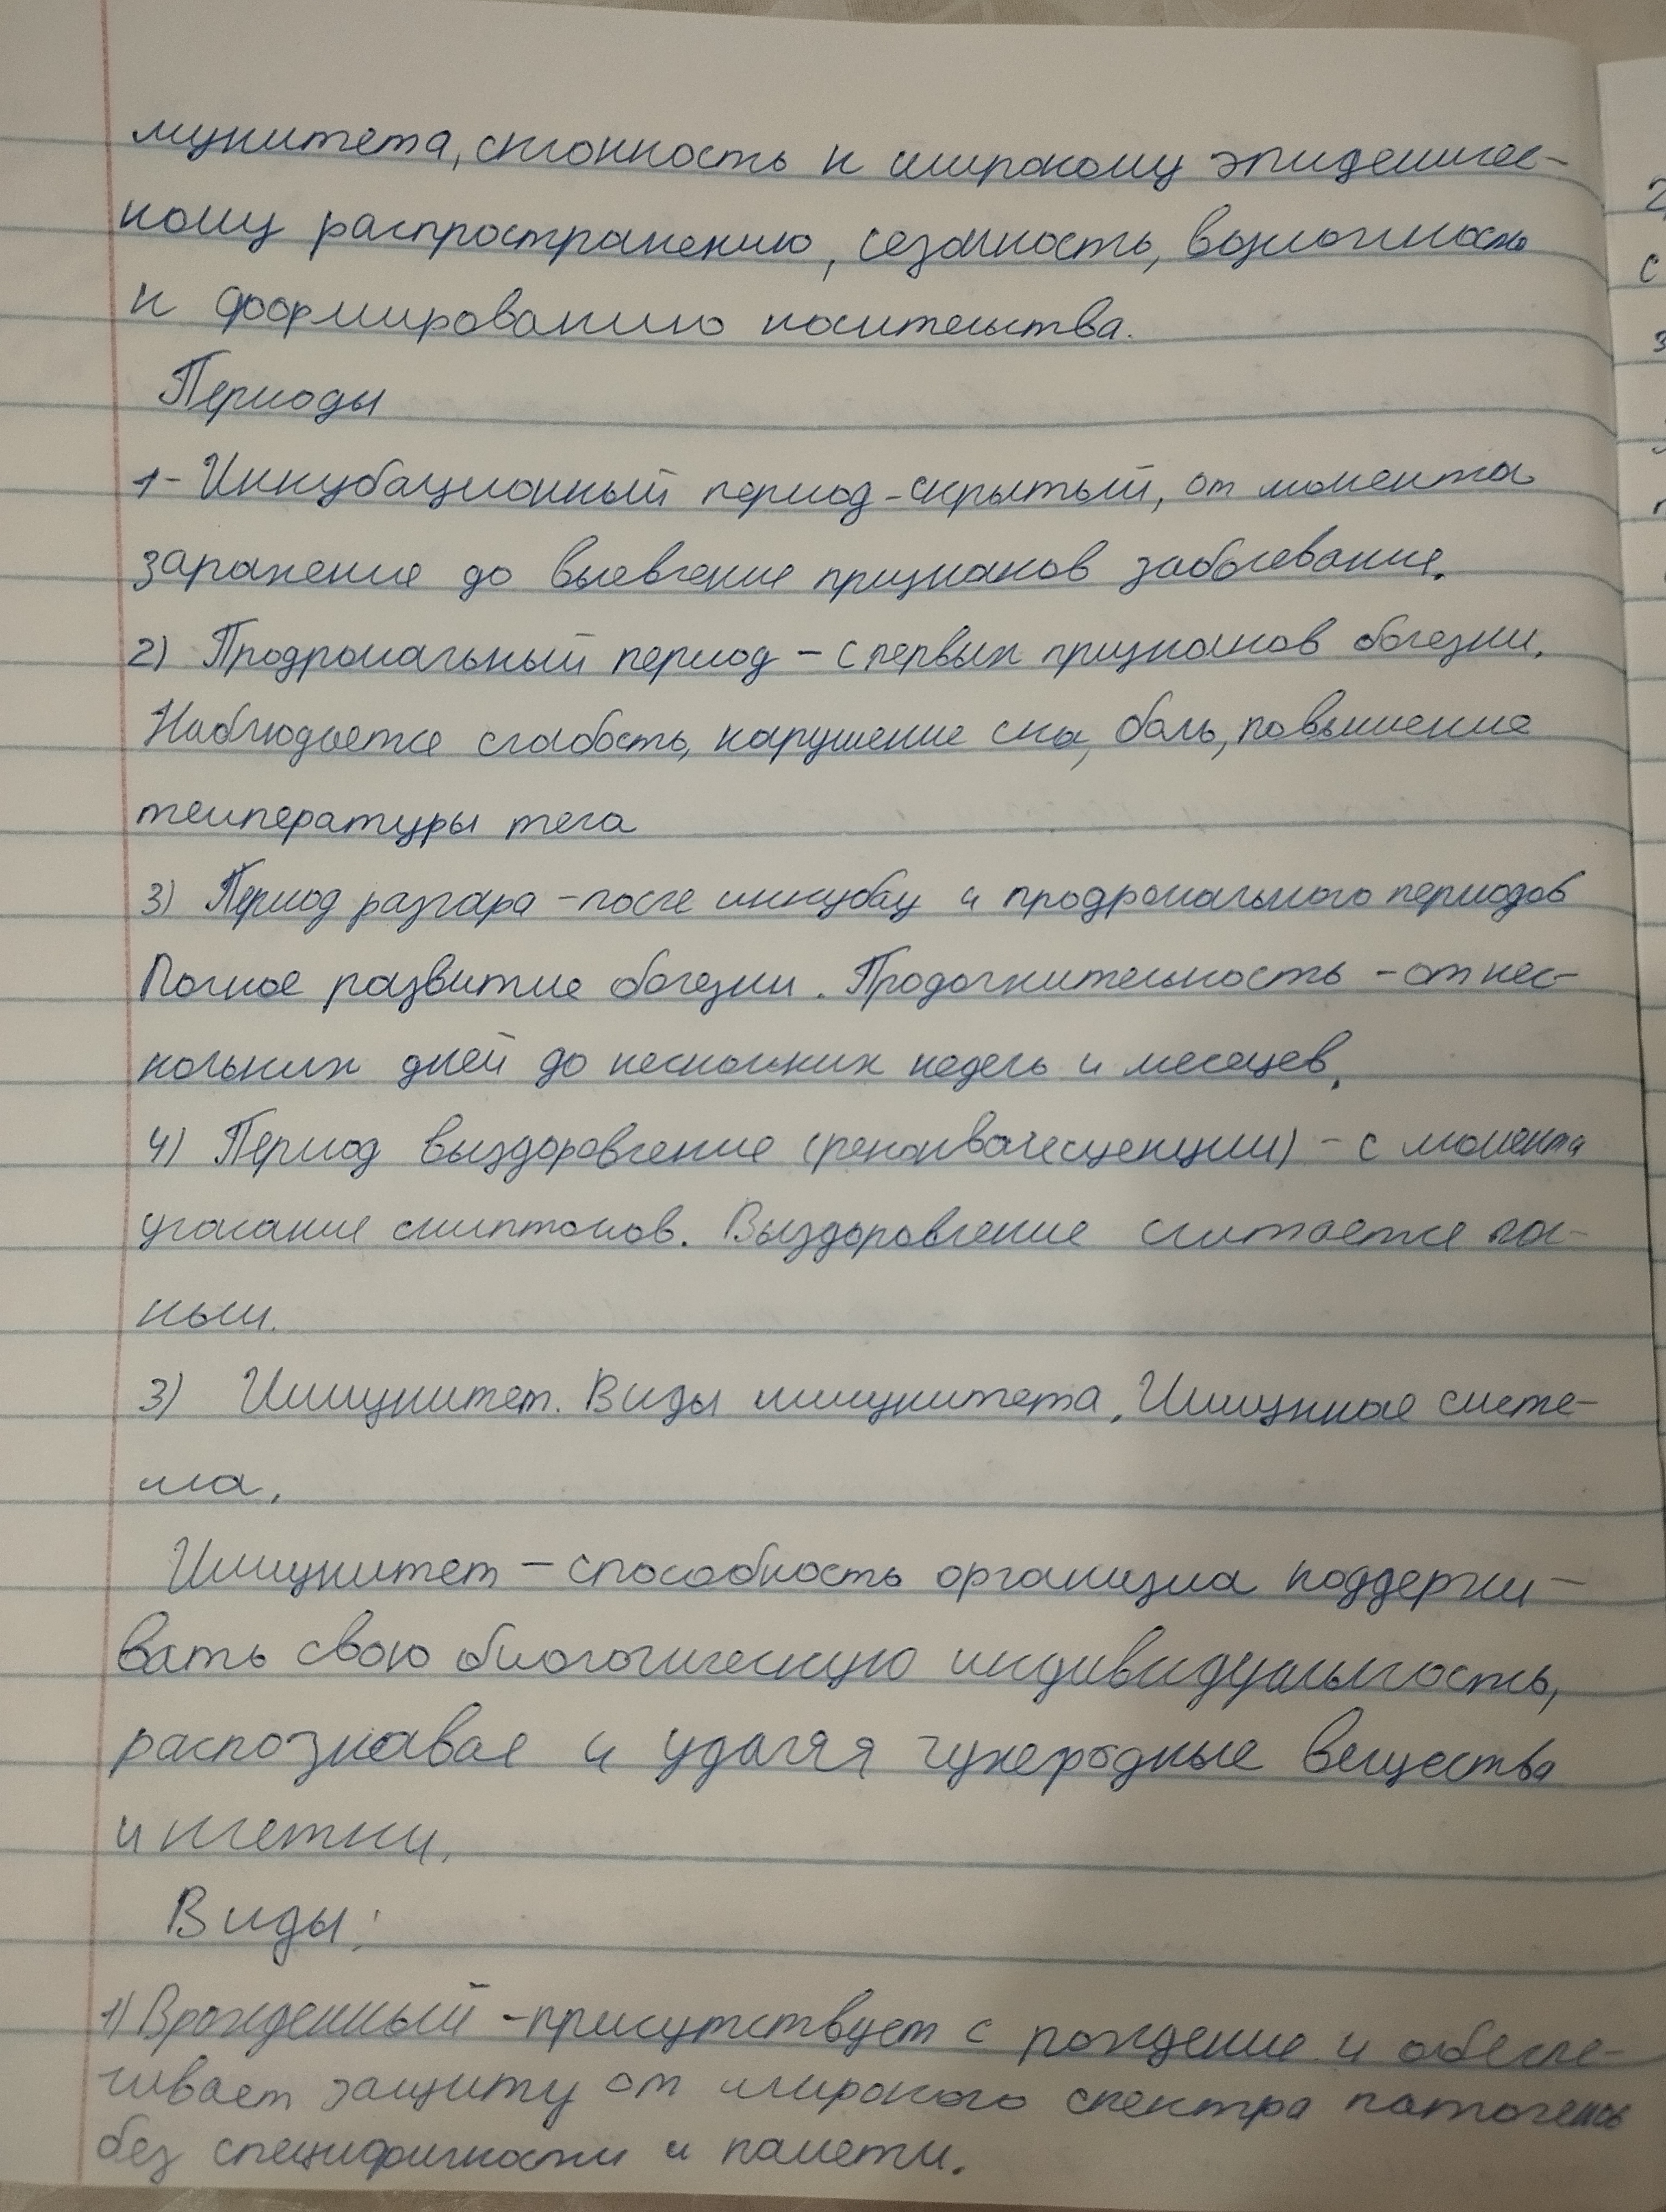 мунитета, склонность к широкому эпидемичес-
кому распространению, сезонность, возможность
к формированию носительства.
Периоды
1 - Инкубационный период - скрытый, от момента
заражение до выевление признаков заболевание.
2) Продромальный период - с первых признаков болезни.
Наблюдается слабость, нарушение сна, боль, повышение
температуры тела
3) Период разгара - после инкубац и продромального периодов
Полное развитие болезни. Продолжительность - от нес-
кольких дней до нескольких недель и месецев.
4) Период выздоровление (реконвалесценции) - с момента
угасание симптомов. Выздоровление считается пол-
ным.
3) Иммунитет. Виды иммунитета. Иммунная систе-
ма.
Иммунитет - способность организма поддержи-
вать свою биологическую индивидуальность,
распознавая и удаляя чужеродные вещества
и клетки.
Виды:
1) Врожденный - присутствует с рождение и обеспе-
чивает защиту от широкого спектра патогенов
без специфичности и памети.